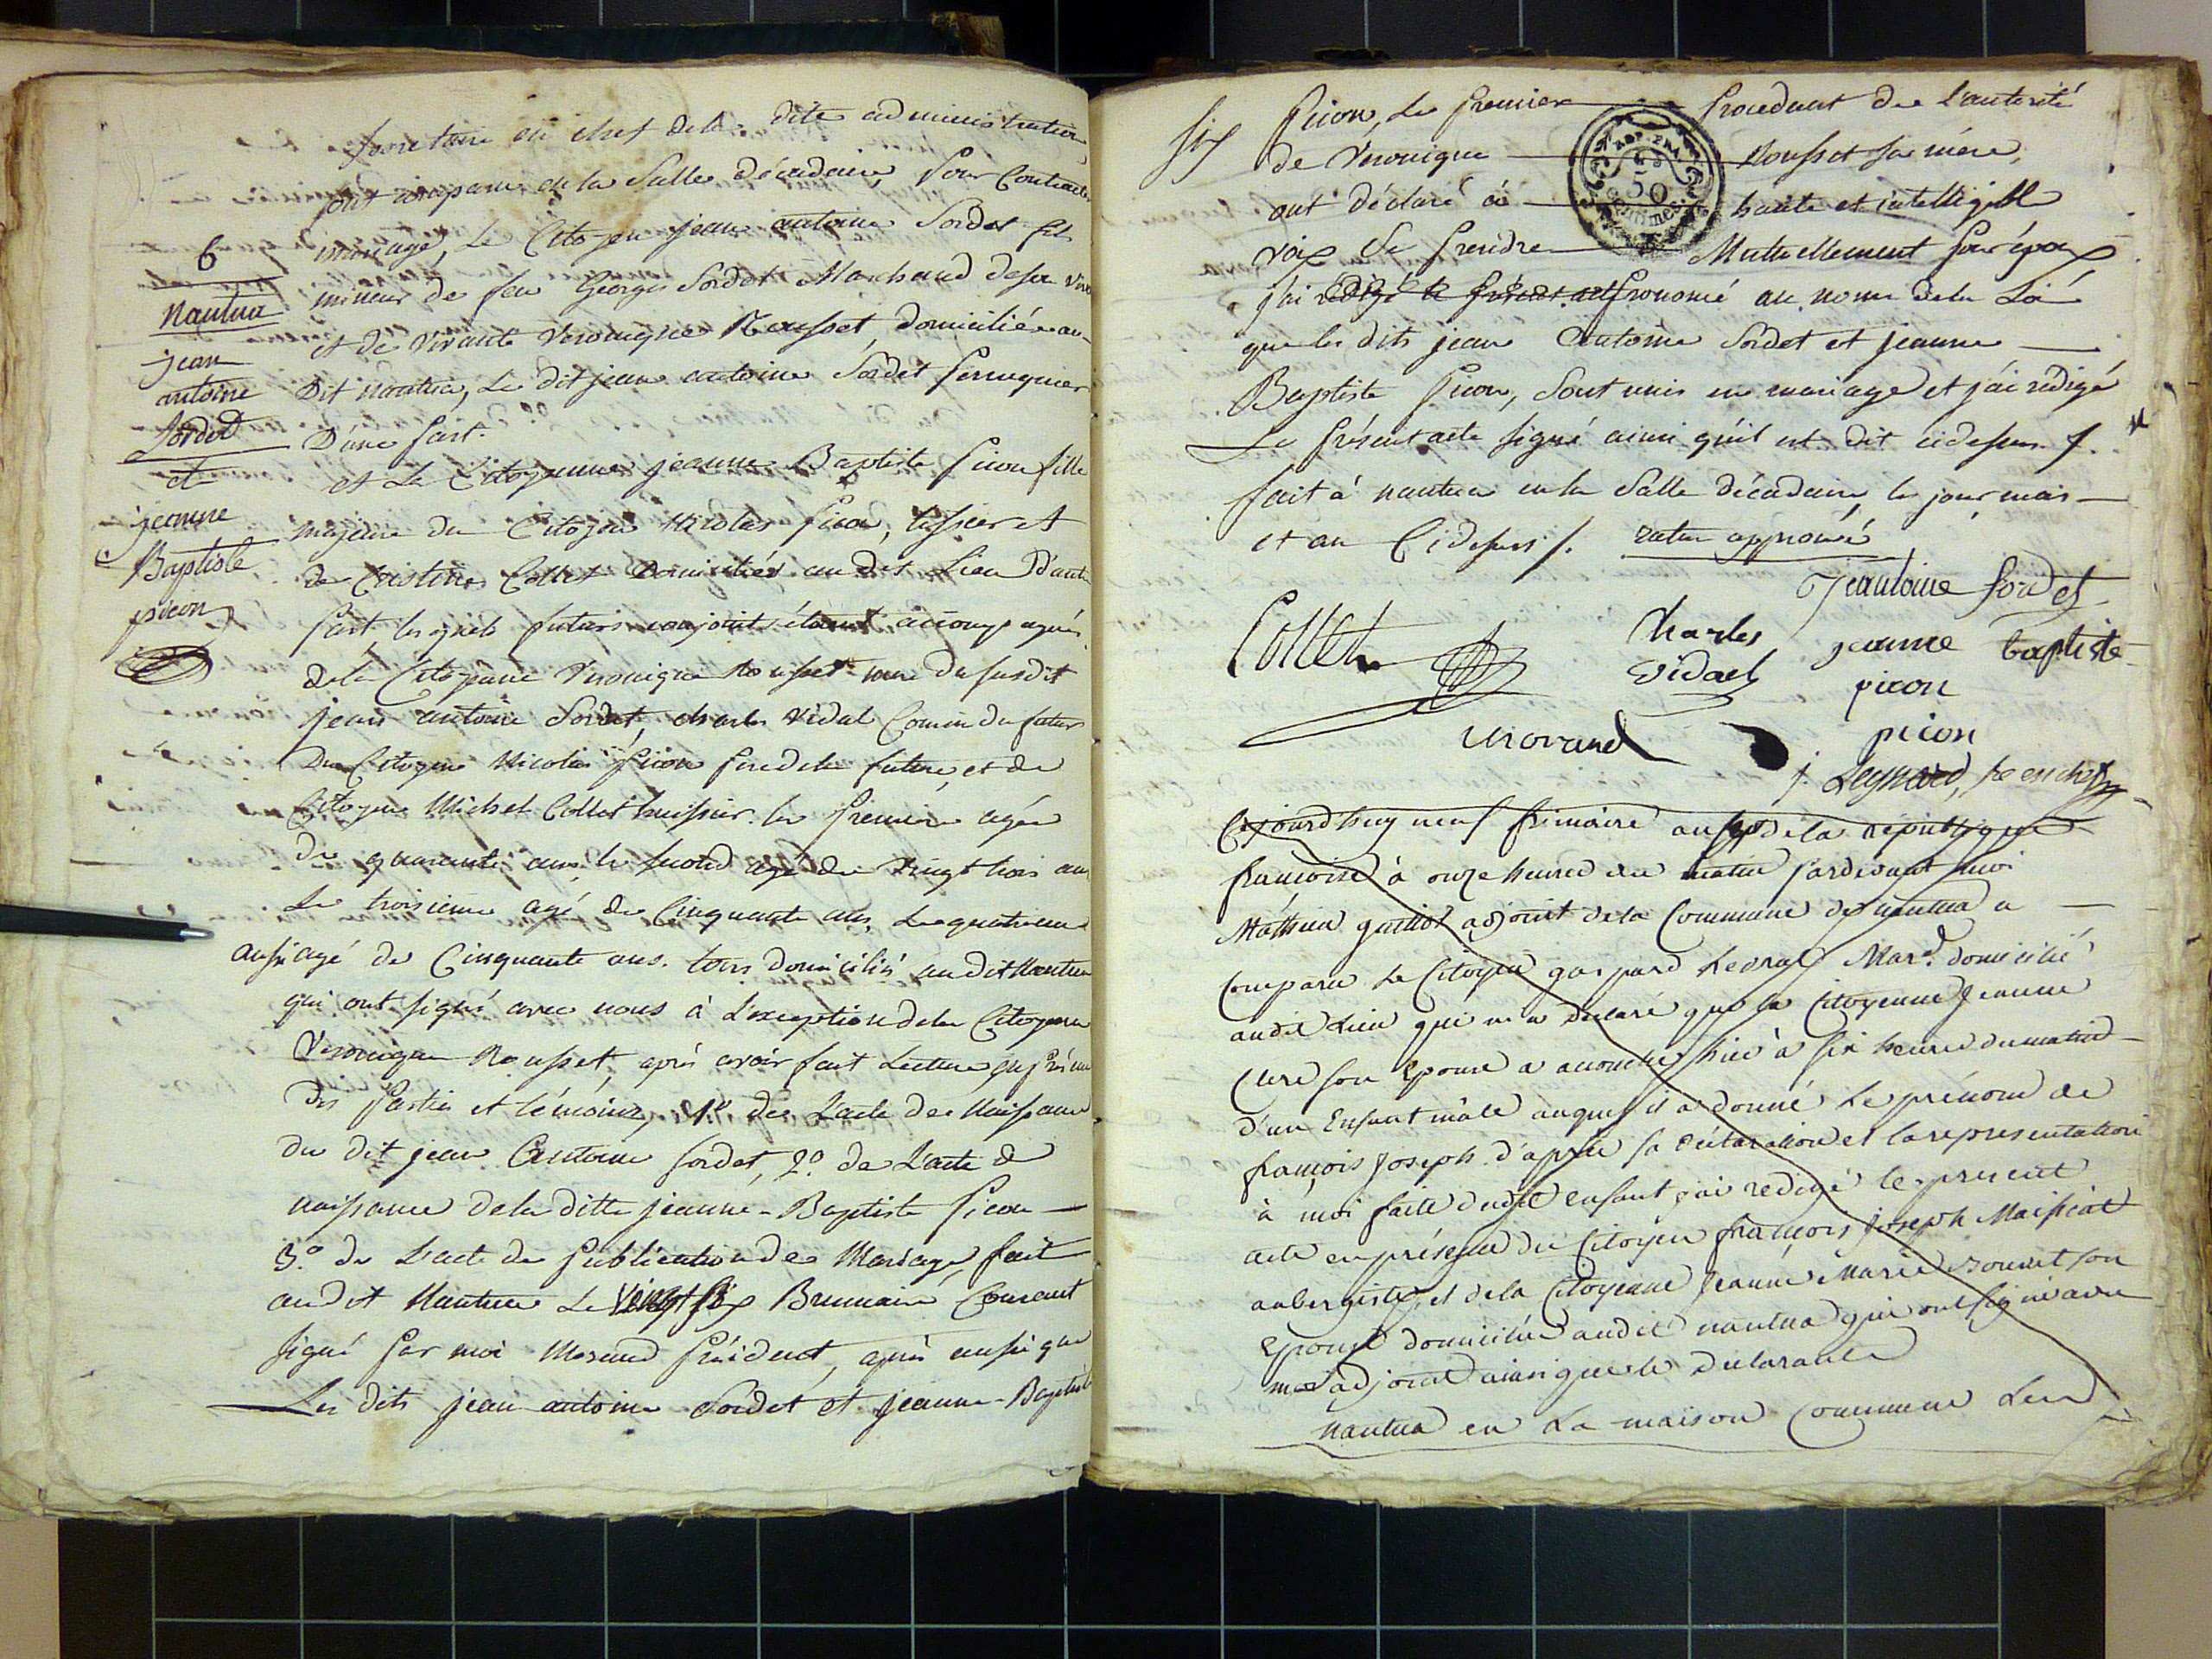 secretaire en chef de la dite administration
sont comparu en la Salle décadaire, Pour Contracter
mariage, Le Citoyen jean antoine Sordet fils
mineur de feu Georges Sordet Marchand de son viv
et de Vivante Veronique Rousset, domiciliée au
Dit nantua, Le dit jean antoine Sordet Perruquier
D'une part.
et La Citoyenne jeanne Baptiste picon fille
majeure du Citoyen Nicolas picon, huissier et
de Cristine Collet Domiciliés au dit Lieu D'autre
part lesquels futurs conjoints étant accompagnés
de la Citoyenne Veronique Rousset mere du susdit
jean antoine Sordet, charles Vidal Cousin du futur
Du Citoyen Nicolas picon pere de la future, et du
Citoyen Michel Collet huissier. la premiere agée
de quarante ans, le second agé de vingt trois ans
Le troisieme agé de Cinquante ans, Le quatrieme
aussi agé de Cinquante ans. tous domiciliés audit Nantua
qui ont signé avec nous à L'exception de la Citoyenne
Veronique Rousset, après avoir fait Lecture en présence
des parties et témoins, 1º de L'acte de Naissance
du dit jean Antoine Sordet, 2º de L'acte de
naissance de la ditte jeanne-Baptiste Picon —
3º de L'acte de Publication de Mariage, fait
audit Nantua Le Vingt six Brumaire Courant
signé par moi Morand Président, après aussi que
Les dits jean antoine Sordet et jeanne-Baptiste
6
Nantua
jean
antoine
Sordet
et
jeanne
Baptiste
picon
six
Picon, Le premier procedant de L'autorité
de Véronique Rousset sa mère,
ont déclaré à haute et intelligible
voix Se prendre Mutuellement pour époux
j'ai rédigé le présent acte prononcé au nom de la Loi
que les dits jean Antoine Sordet et jeanne —
Baptiste Picon, Sont unis en mariage et j'ai rédigé
Le présent acte signé ainsi qu'il est dit cidessus ./.
fait à nantua en la Salle décadaire, les jour, mois —
et an Cidessus ./. rature approuvée
50
Centimes
J antoine Sordet
Collet
Charles
Vidal
jeanne baptiste
picon
Morand
picon
J. Leynard, sre en chef
Cejourd'huy neuf frimaire an sept de la république
françoise à onze heures du matin pardevant moi
Mathieu guillot adjoint de la Commune de nantua a —
Comparu Le Citoyen gaspard Mard. domicilié
audit Lieu qui m'a déclaré que la Citoyenne Jeanne
son Epouse a accouché hier à six heures du matin —
d'un Enfant mâle auquel il a donné Le prénom de
françois Joseph. d'après sa déclaration et la representation
à moi faite dudit enfant j'ai redigé le present
acte en présence du Citoyen françois joseph Maissiat
aubergiste, et de la Citoyenne Jeanne Marie son
Epouse domiciliés audit nantua qui ont signé avec
moi adjoint ainsi que le déclarant
nantua en La maison Commune Les